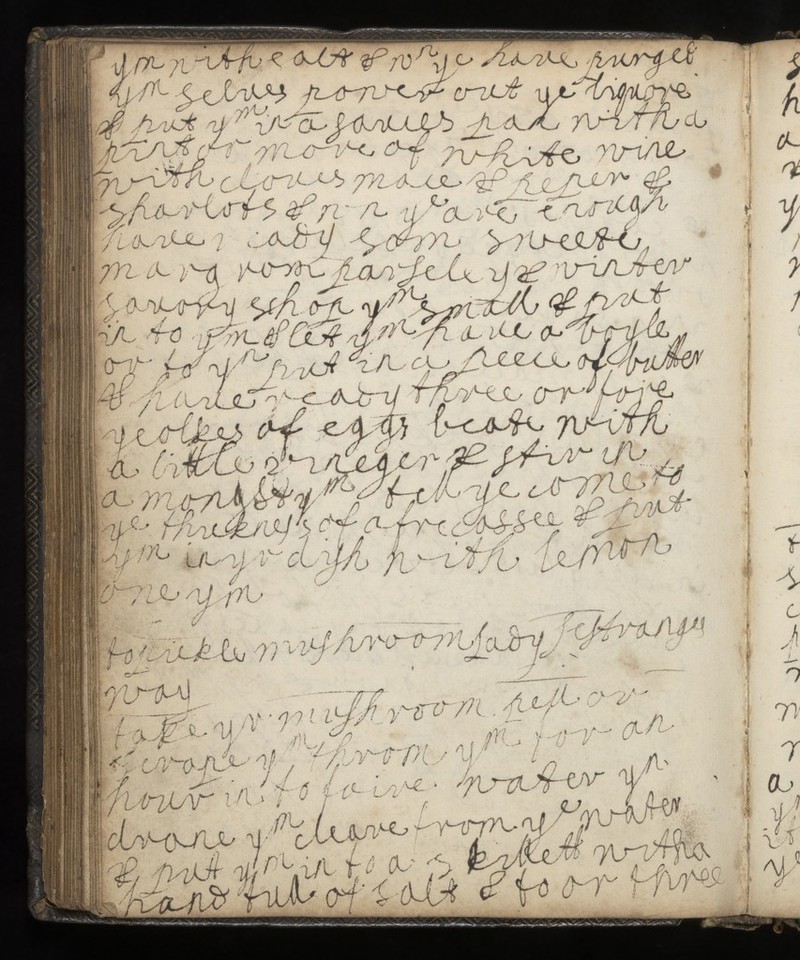 ym with salt & wn ye have purged
ym selves power out ye liquore
& put ym in a saucis pan with a
pint or more of white wine
with cloves mace & peper &
sharlots & wn ye are enough
have r eady som sweete
marg rom parseley & winter
savory schop ym small & put
in to ym & let ym have a boyle
or to yn put in a peece of butter
& have ready three or fore
yeolkes of eggs beate with
a little vineger & stir in
a mongst ym tell ye come to
ye thickness of a frecassee & put
ym in yr dish with lemon
one ym
to pickle mushroom Lady Lestranges
way
take yr mushroom pell or
scrape ym throm ym for an
hour in to faire water yn
drane ym cleare from ye water
& put ym in to a skillett with a
hand full of salt & to or three